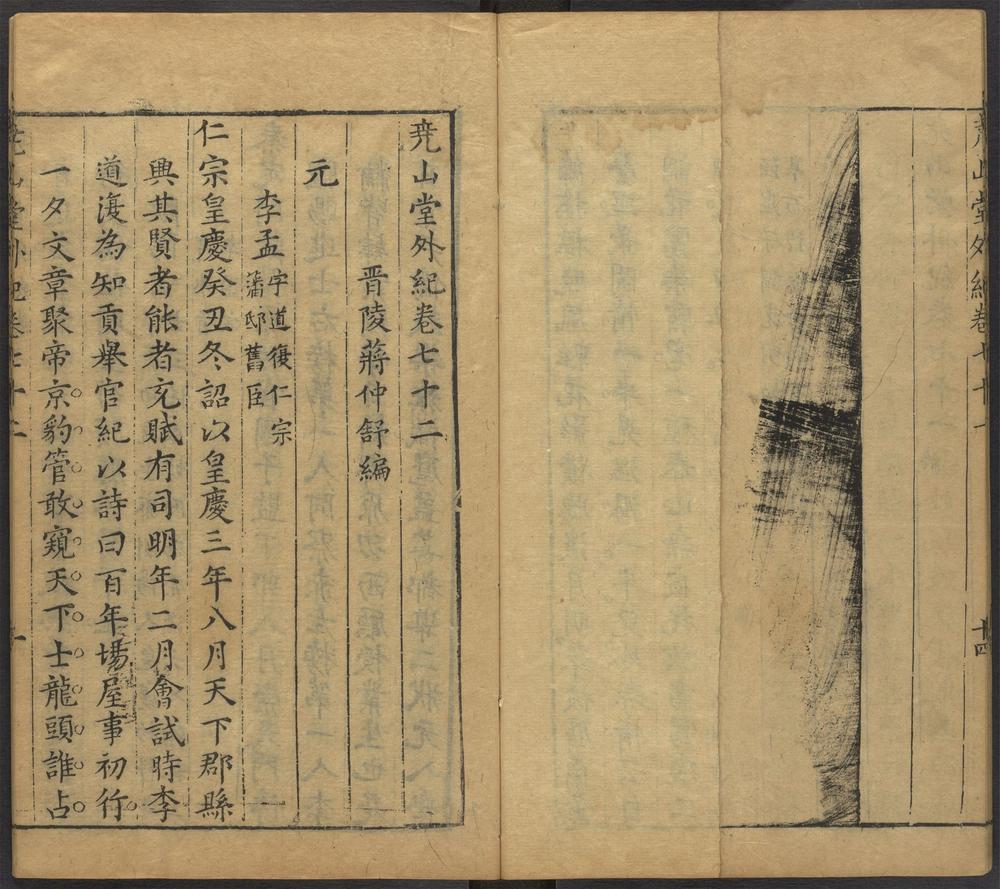 堯山堂外紀卷七十一
十四
堯山堂外紀卷七十二
晋陵蔣仲舒編
元
李孟字道復仁宗
潘邸舊臣
仁宗皇慶癸丑冬詔以皇慶三年八月天下郡縣
興其賢者能者充賦有司明年二月會試時李
道復為知貢舉官紀以詩曰百年場屋事初行
一夕文章聚帝京豹管敢窺天下士龍頭誰占
堯山堂外紀卷七十二
一